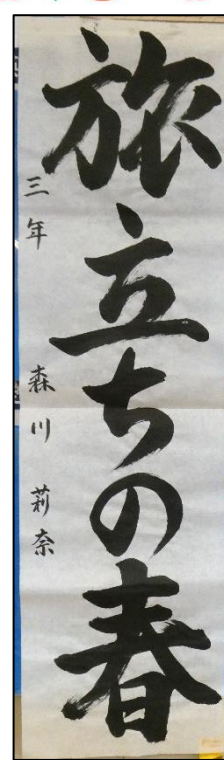 旅立ちの春
三年 森川莉奈